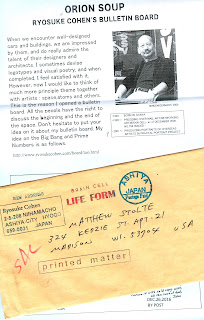 ORION SOUP
RYOSUKE COHEN'S BULLETIN BOARD
When we encounter well-designed
cars and buildings, we are impressed
by them, and do really admire the
talent of their designers and
architects. I sometimes devise
logotypes and visual poetry, and when
completed, I feel satisfied with it.
However, now I would like to think of
much more principle theme together
with artists : seasonatons and others.
This is the reason I opened a bulletin
board. All the people have the right to
discuss the beginning and the end of
the space. Don't hesitate to put your
idea on it about my bulletin board. My
idea on the Big Bang and Prime
Numbers is as follows.
BRAIN CELL
LIFE FORM
ASHIYA
JAPAN
Ryosuke Cohen
3-5-208 NIIHAMACHO
ASHIYA CITY HYOGO
659-0031 JAPAN
MATTHEW STOLTE
324 KEDZIE ST. APT. 21
MADISON WI. 53704 USA
printed matter
DEC.26,2016
BY POST